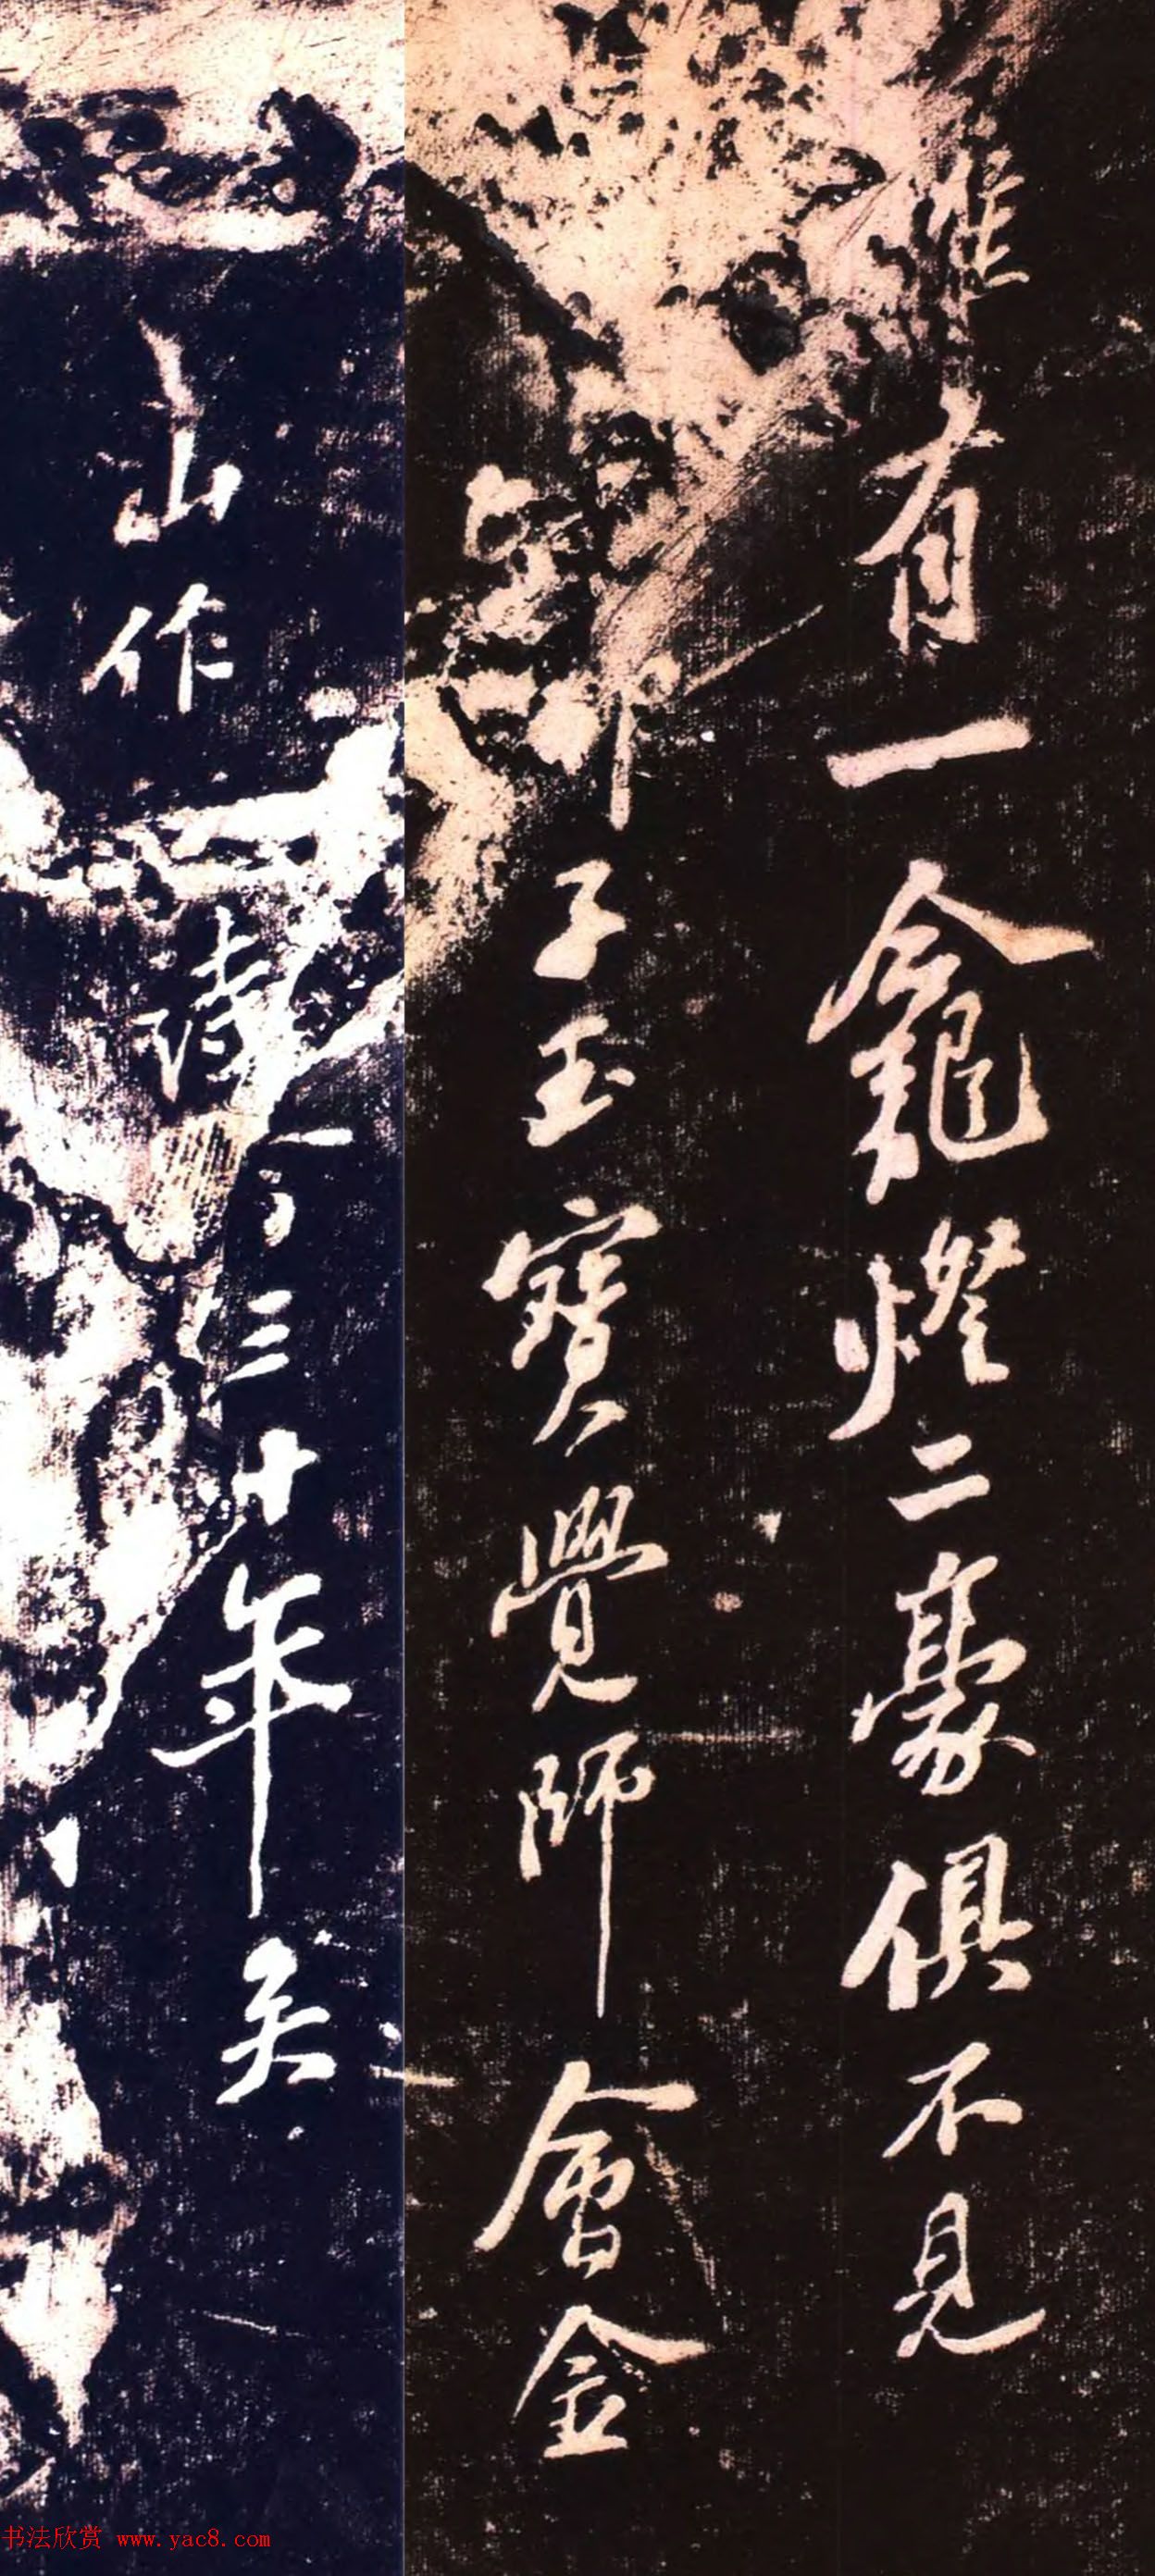 唯有一龕燈二豪俱不見
子玉寶覺師會金
三十年矣
山作
书法欣赏 www.yac8.com